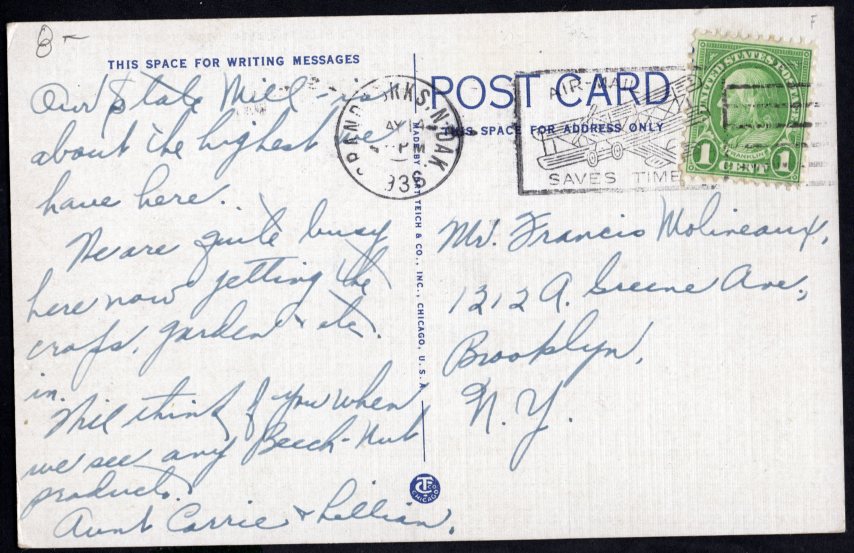 8-
F
THIS SPACE FOR WRITING MESSAGES
Our State Mill - is
about the highest we
have here.
We are quite busy
here now getting the
crops, garden & etc.
in.
Will think of you when
we see any Beech-Nut
products.
Aunt Carrie & Lillian.
MADE BY CURT TEICH & CO., INC., CHICAGO, U.S.A.
CT
CHICAGO
POST CARD
THIS SPACE FOR ADDRESS ONLY
GRAND FORKS, N. DAK
PM
193
AIR-MAIL
SAVES TIME
UNITED STATES POSTAGE
FRANKLIN
1 CENT 1
Mr. Francis Molineaux,
1212 A. Greene Ave.,
Brooklyn,
N. Y.